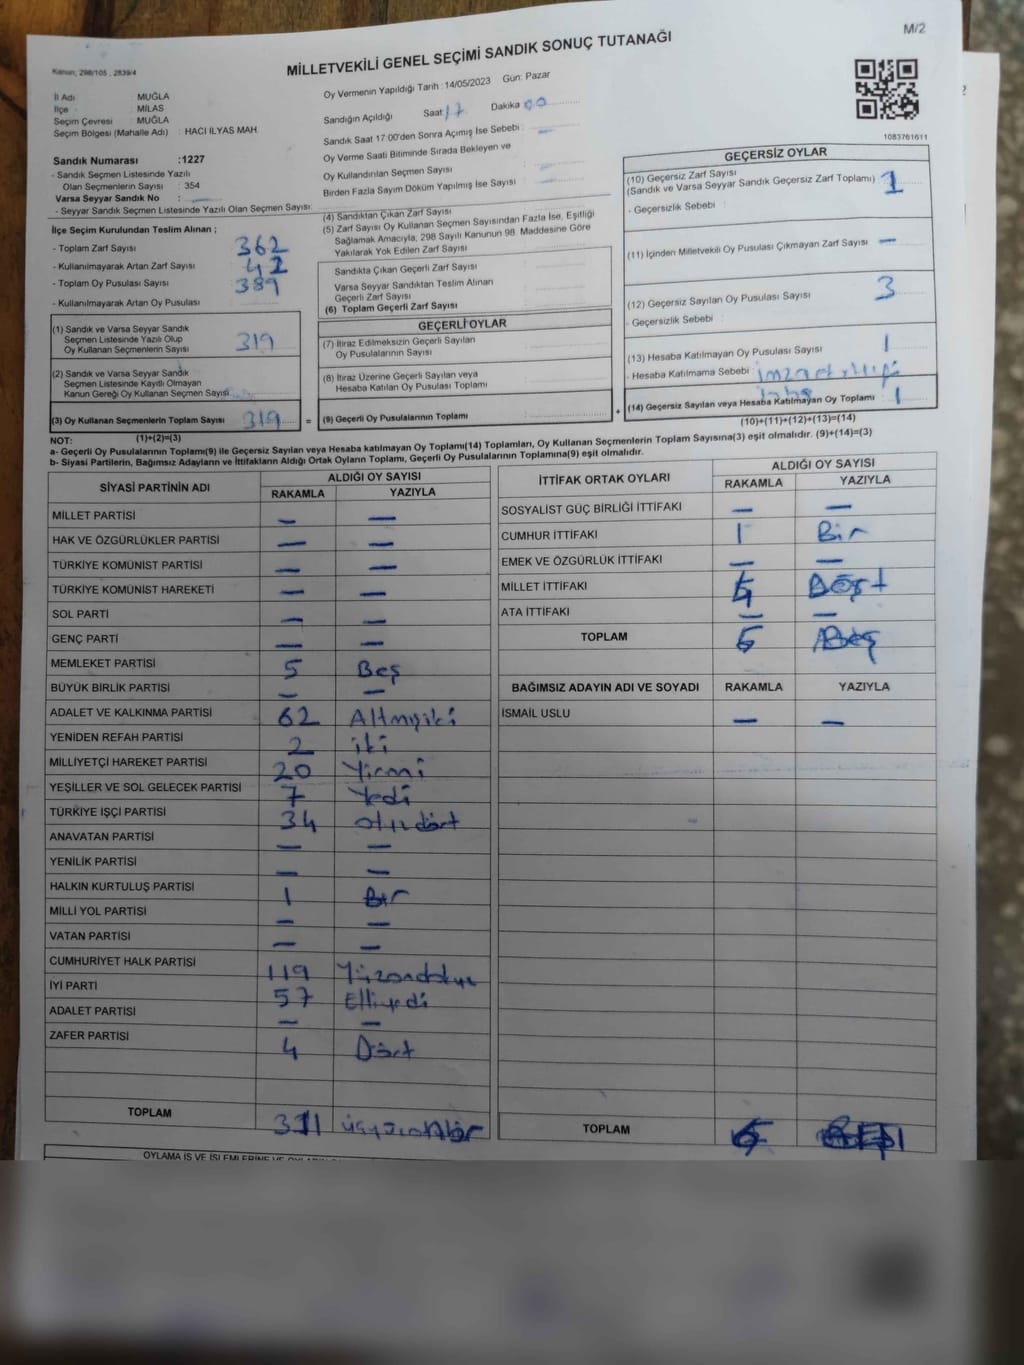 M/2
MİLLETVEKİLİ GENEL SEÇİMİ SANDIK SONUÇ TUTANAĞI
Kanun; 298/105 , 2839/4
İl Adı : MUĞLA
İlçe : MİLAS
Seçim Çevresi : MUĞLA
Seçim Bölgesi (Mahalle Adı) : HACI İLYAS MAH.
Sandık Numarası :1227
- Sandık Seçmen Listesinde Yazılı
Olan Seçmenlerin Sayısı : 354
Varsa Seyyar Sandık No :
- Seyyar Sandık Seçmen Listesinde Yazılı Olan Seçmen Sayısı:
Oy Vermenin Yapıldığı Tarih : 14/05/2023 Gün: Pazar
Sandığın Açıldığı Saat 17 Dakika 00
Sandık Saat 17:00'den Sonra Açımış İse Sebebi : —
Oy Verme Saati Bitiminde Sırada Bekleyen ve
Oy Kullandırılan Seçmen Sayısı : —
Birden Fazla Sayım Döküm Yapılmış İse Sayısı : —
1083761611
İlçe Seçim Kurulundan Teslim Alınan ;
- Toplam Zarf Sayısı : 362
- Kullanılmayarak Artan Zarf Sayısı : 42
- Toplam Oy Pusulası Sayısı : 389
- Kullanılmayarak Artan Oy Pusulası :
(1) Sandık ve Varsa Seyyar Sandık
Seçmen Listesinde Yazılı Olup
Oy Kullanan Seçmenlerin Sayısı 319
(2) Sandık ve Varsa Seyyar Sandık
Seçmen Listesinde Kayıtlı Olmayan
Kanun Gereği Oy Kullanan Seçmen Sayısı
(3) Oy Kullanan Seçmenlerin Toplam Sayısı 319 =
(1)+(2)=(3)
(4) Sandıktan Çıkan Zarf Sayısı
(5) Zarf Sayısı Oy Kullanan Seçmen Sayısından Fazla İse, Eşitliği
Sağlamak Amacıyla, 298 Sayılı Kanunun 98. Maddesine Göre
Yakılarak Yok Edilen Zarf Sayısı
Sandıkta Çıkan Geçerli Zarf Sayısı
Varsa Seyyar Sandıktan Teslim Alınan
Geçerli Zarf Sayısı
(6) Toplam Geçerli Zarf Sayısı
GEÇERLİ OYLAR
(7) İtiraz Edilmeksizin Geçerli Sayılan
Oy Pusulalarının Sayısı
(8) İtiraz Üzerine Geçerli Sayılan veya
Hesaba Katılan Oy Pusulası Toplamı
(9) Geçerli Oy Pusulalarının Toplamı +
GEÇERSİZ OYLAR
(10) Geçersiz Zarf Sayısı
(Sandık ve Varsa Seyyar Sandık Geçersiz Zarf Toplamı) 1
- Geçersizlik Sebebi :
(11) İçinden Milletvekili Oy Pusulası Çıkmayan Zarf Sayısı —
(12) Geçersiz Sayılan Oy Pusulası Sayısı 3
- Geçersizlik Sebebi :
(13) Hesaba Katılmayan Oy Pusulası Sayısı 1
- Hesaba Katılmama Sebebi :
(14) Geçersiz Sayılan veya Hesaba Katılmayan Oy Toplamı : 1
(10)+(11)+(12)+(13)=(14)
NOT:
a- Geçerli Oy Pusulalarının Toplamı(9) ile Geçersiz Sayılan veya Hesaba katılmayan Oy Toplamı(14) Toplamları, Oy Kullanan Seçmenlerin Toplam Sayısına(3) eşit olmalıdır. (9)+(14)=(3)
b- Siyasi Partilerin, Bağımsız Adayların ve İttifakların Aldığı Ortak Oyların Toplamı, Geçerli Oy Pusulalarının Toplamına(9) eşit olmalıdır.
SİYASİ PARTİNİN ADI ALDIĞI OY SAYISI
RAKAMLA YAZIYLA
MİLLET PARTİSİ — —
HAK VE ÖZGÜRLÜKLER PARTİSİ — —
TÜRKİYE KOMÜNİST PARTİSİ — —
TÜRKİYE KOMÜNİST HAREKETİ — —
SOL PARTİ — —
GENÇ PARTİ — —
MEMLEKET PARTİSİ 5 Beş
BÜYÜK BİRLİK PARTİSİ — —
ADALET VE KALKINMA PARTİSİ 62 Altmışiki
YENİDEN REFAH PARTİSİ 2 iki
MİLLİYETÇİ HAREKET PARTİSİ 20 Yirmi
YEŞİLLER VE SOL GELECEK PARTİSİ 7 Yedi
TÜRKİYE İŞÇİ PARTİSİ 34 otuzdört
ANAVATAN PARTİSİ — —
YENİLİK PARTİSİ — —
HALKIN KURTULUŞ PARTİSİ 1 Bir
MİLLİ YOL PARTİSİ — —
VATAN PARTİSİ — —
CUMHURİYET HALK PARTİSİ 119 Yüzondokuz
İYİ PARTİ 57 Elliyedi
ADALET PARTİSİ — —
ZAFER PARTİSİ 4 Dört
TOPLAM 311 üçyüzonbir
İTTİFAK ORTAK OYLARI ALDIĞI OY SAYISI
RAKAMLA YAZIYLA
SOSYALİST GÜÇ BİRLİĞİ İTTİFAKI — —
CUMHUR İTTİFAKI 1 Bir
EMEK VE ÖZGÜRLÜK İTTİFAKI — —
MİLLET İTTİFAKI 4 Dört
ATA İTTİFAKI — —
TOPLAM 5 Beş
BAĞIMSIZ ADAYIN ADI VE SOYADI RAKAMLA YAZIYLA
İSMAİL USLU — —
TOPLAM